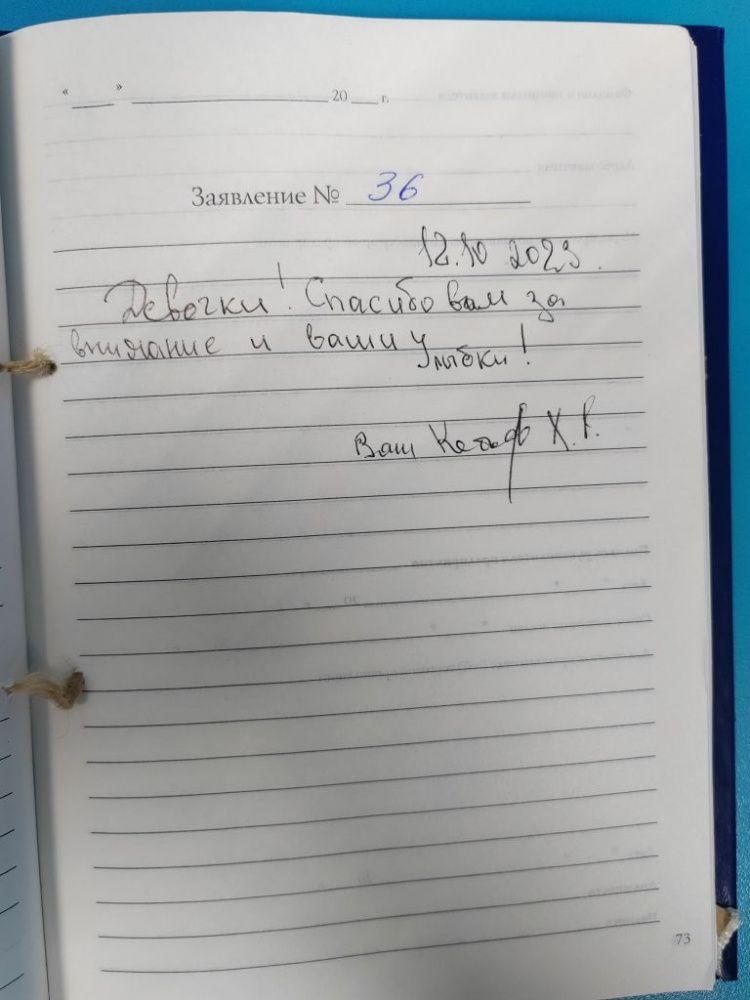 "___" ____________ 20___ г.
Заявление № 36
12.10 2023.
Девочки! Спасибо вам за
внимание и ваши улыбки!
Ваш Х. Г.
73